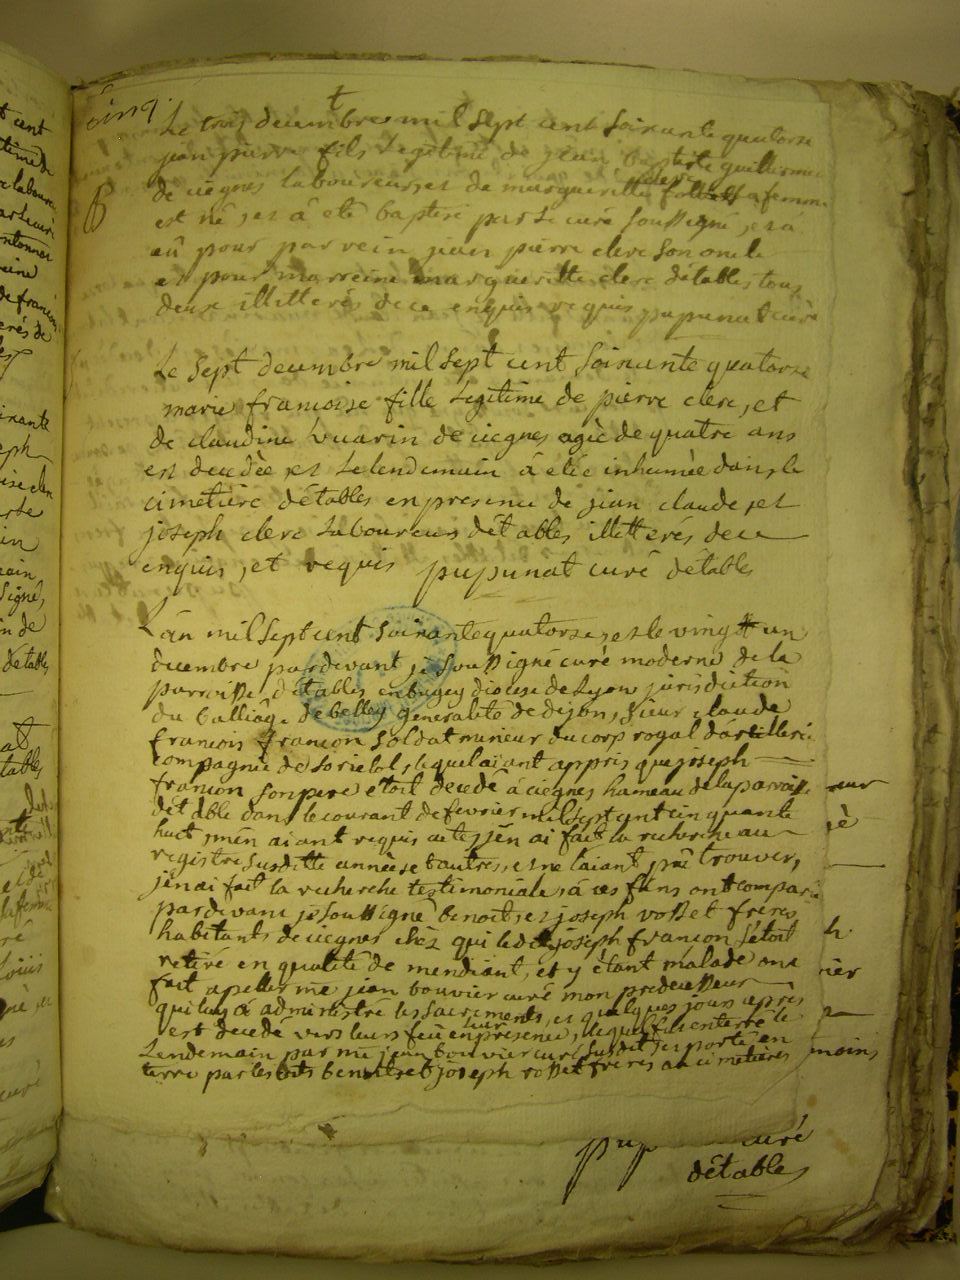 cinq.
Le trois decembre mil sept cent soixante quatorse
jean pierre fils legitime de jean baptiste guillermin
de ciegnes laboureur, et de margueritte sa femme
est né, et à eté baptisé par le curé soussigné, et a
eû pour parrein jean pierre clerc son oncle
et pour marreine margueritte clerc détables tous
deux illitterés de ce enquis requis pupunat curé
Le sept decembre mil sept cent soixante quatorse
marie francoise fille legitime de pierre clerc, et
de claudine vuarin de ciegnes agée de quatre ans
est decedée et le lendemain à etée inhumée dans le
cimetiere détables en presence de jean claude, et
joseph clerc laboureurs détables illitterés de ce
enquis, et requis pupunat curé détables
L'an mil sept cent soixante quatorse, et le vingt un
decembre pardevant je soussigné curé moderne de la
parroisse détables en bugey diocese de Lyon jurisdiction
du balliage de belley generalité de dijon, sieur claude
francois françon soldat mineur du corp royal d'artillerie
compagnie de lequel aiant appris que joseph
françon son pere etoit decedé à ciegnes hameau de la paroisse
détable dans le courant de fevrier mil sept cent cinquante
huit m'en aiant requis acte j'en ai fait la recherche au
registre susditte année et autres, et ne l'aiant pû trouver,
j'en ai fait la recherche testimoniale, à ces fins ont comparu
pardevant je soussigné benoit, et joseph rosset freres
habitants de ciegnes chez qui ledit joseph françon s'étoit
retiré en qualité de mendiant, et y étant malade ont
fait apeller mre jean bouvier curé mon predecesseur
qui luy à administré les sacrements, et quelques jours apres
s'est decedé vers leurs feu en leur presence, lequel fut enterré le
Lendemain par mre jean bouvier curé susdit, et porté en
terre par lesdits benoit et joseph rosset freres au cimetiere
curé
détables